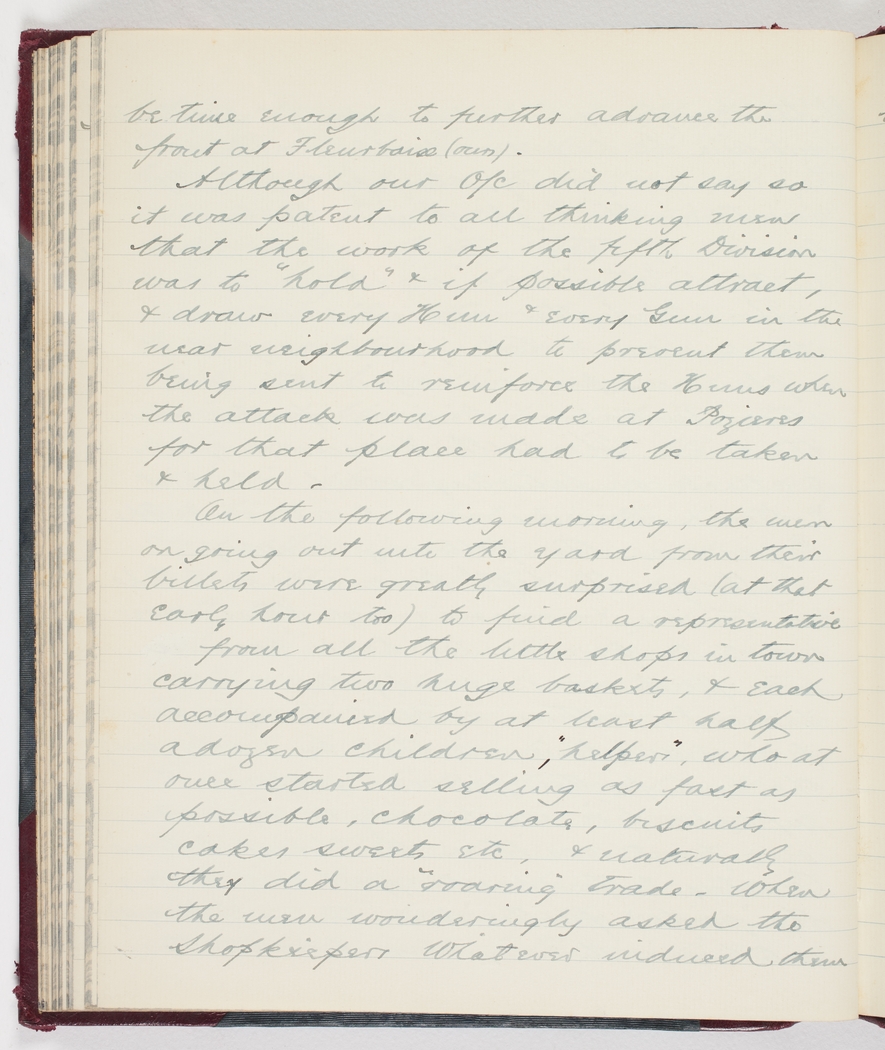 be time enough to further advance the
front at Fleurbaix (ours).
Although our O/c did not say so
it was patent to all thinking men
that the work of the fifth Division
was to "hold" & if possible attract,
& draw every Hun & every Gun in the
near neighbourhood to prevent them
being sent to reinforce the Huns when
the attack was made at Pozieres
for that place had to be taken
& held.
On the following morning, the men
on going out into the yard from their
billets were greatly surprised (at that
early hour too) to find a representative
from all the little shops in town
carrying two huge baskets, & each
accompanied by at least half
a dozen children, "helpers", who at
once started selling as fast as
possible, chocolate, biscuits
cakes sweets etc, & naturally
they did a "roaring" trade. When
the men wonderingly asked the
Shopkeepers Whatever induced them